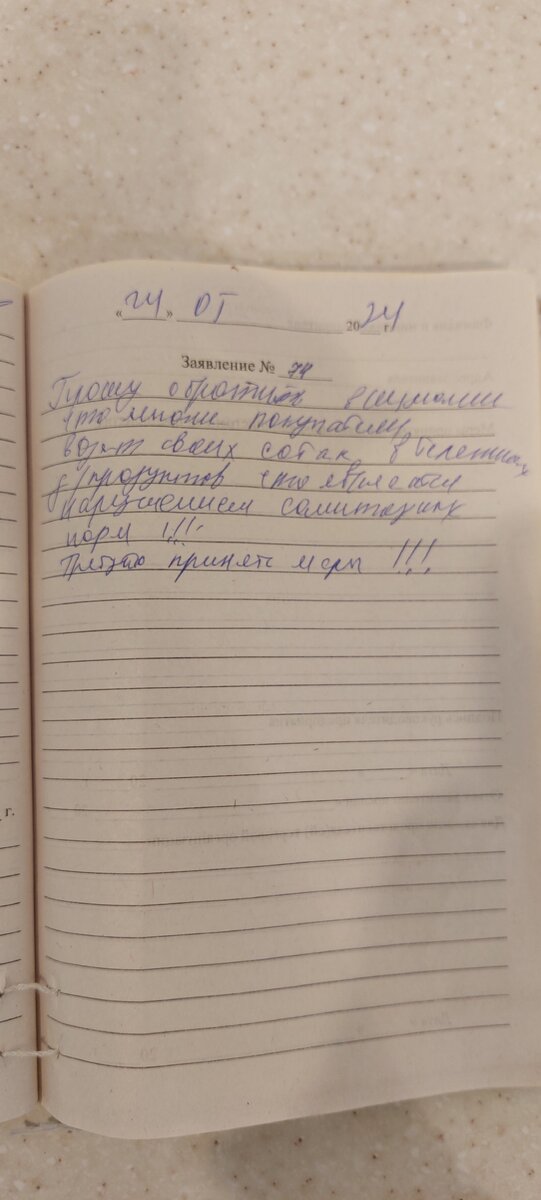 «24» 07 2024 г
Заявление № 74
Прошу обротить внимание
что многие покупатели
возят своих собак в тележках
д/продуктов что является
нарушением санитарных
норм !!!
Требую принять меры !!!
г.